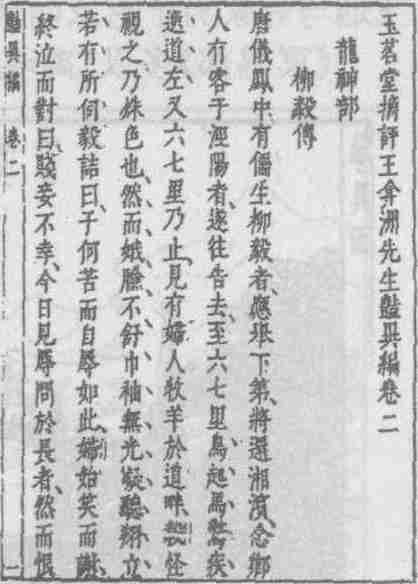 玉茗堂摘評王弇洲先生豔異編卷二
龍神部
柳毅傳
唐儀鳳中有儒生柳毅者應舉下第將還湘濱念鄉
人有客于涇陽者遂往告去至六七里鳥起馬驚疾
逸道左又六七里乃止見有婦人牧羊於道畔毅怪
視之乃殊色也然而娥臉不舒巾袖無光凝聽翔立
若有所伺毅詰曰子何苦而自辱如此婦始笑而謝
終泣而對曰賤妾不幸今日見辱問於長者然而恨
豔異編 卷二 一